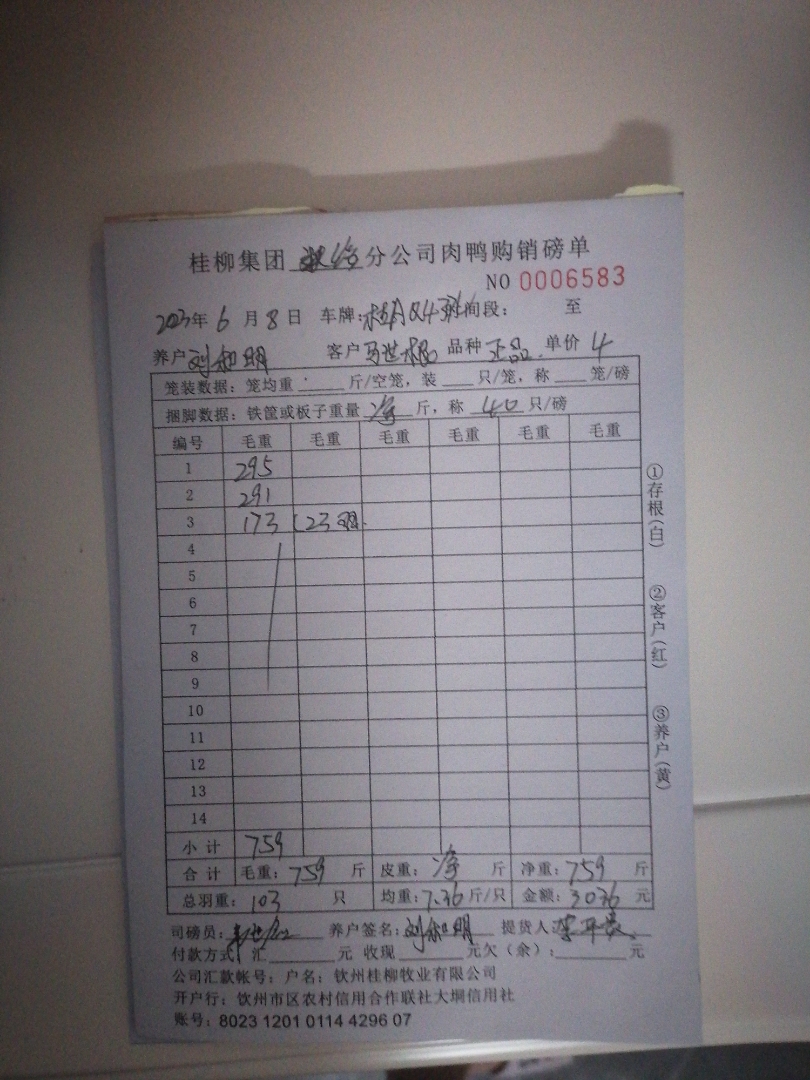 桂柳集团 分公司肉鸭购销磅单
NO 0006583
2023年 6 月 8 日 车牌: 间段: 至
养户 刘和明 客户 马世根 品种 正品 单价 4
笼装数据：笼均重 斤/空笼，装 只/笼，称 笼/磅
捆脚数据：铁筐或板子重量 净 斤，称 40 只/磅
编号 毛重 毛重 毛重 毛重 毛重 毛重
1 295
2 291
3 173 (23羽
4
5
6
7
8
9
10
11
12
13
14
小计 759
合计 毛重：759 斤 皮重：净 斤 净重：759 斤
总羽重：103 只 均重：7.36 斤/只 金额：3036 元
司磅员: 养户签名: 刘和明 提货人:
付款方式 汇 元 收现 元欠（余）: 元
公司汇款帐号：户名：钦州桂柳牧业有限公司
开户行：钦州市区农村信用合作联社大垌信用社
账号：8023 1201 0114 4296 07
①存根(白)
②客户(红)
③养户(黄)